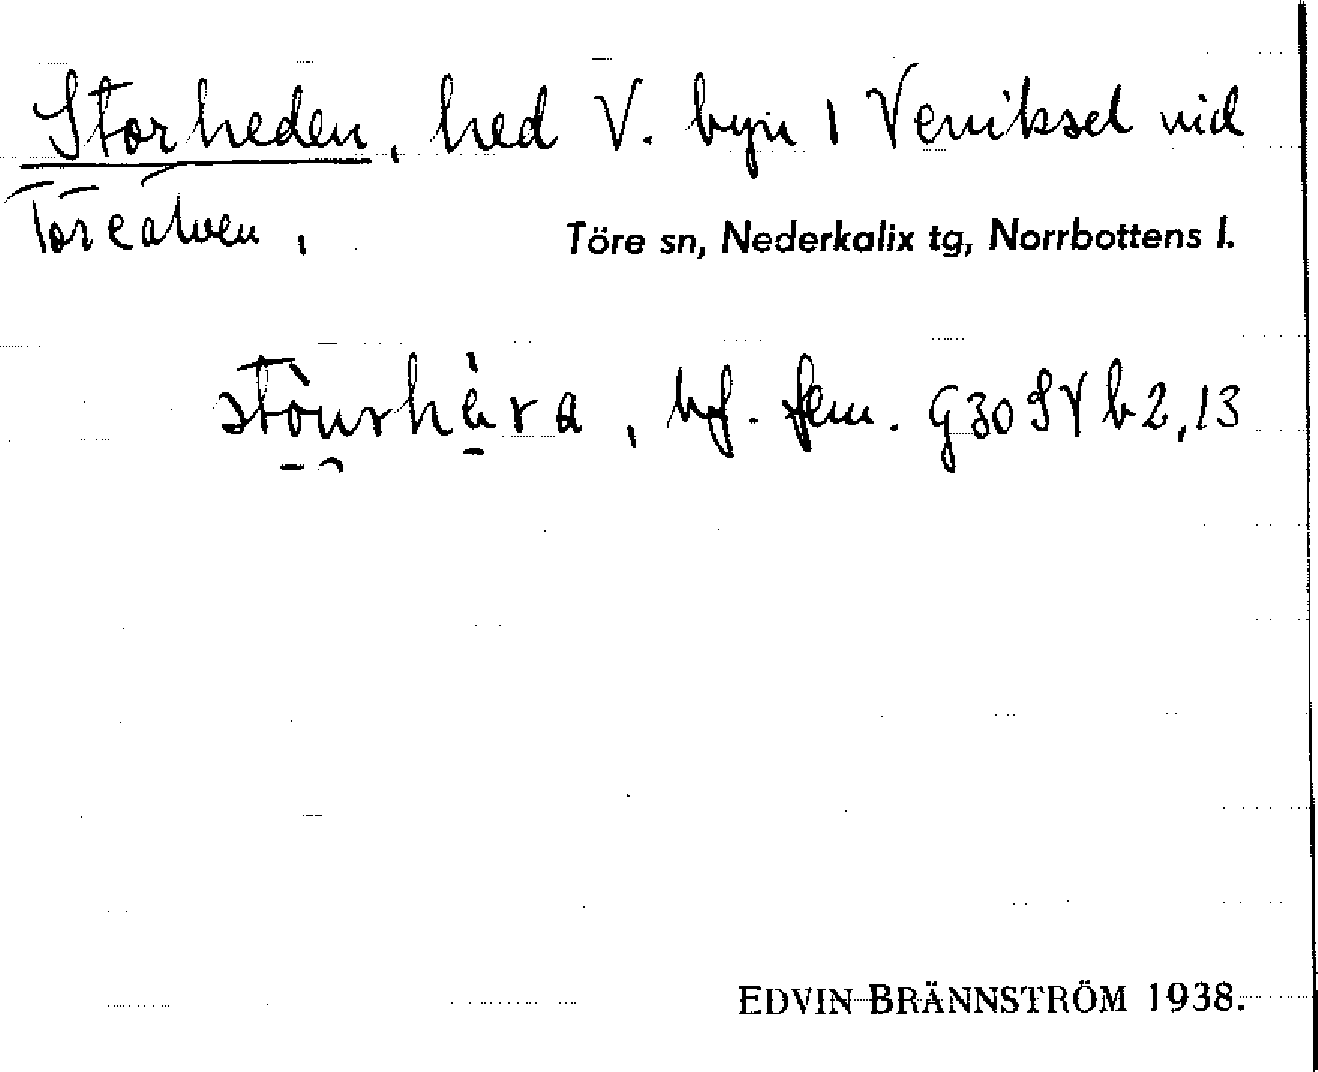 Storheden, hed V. byn i Veniksel vid
Töreälven, Töre sn, Nederkalix tg, Norrbottens l.
stòurhèra, bf. fem. G30SVb2,13
EDVIN BRÄNNSTRÖM 1938.